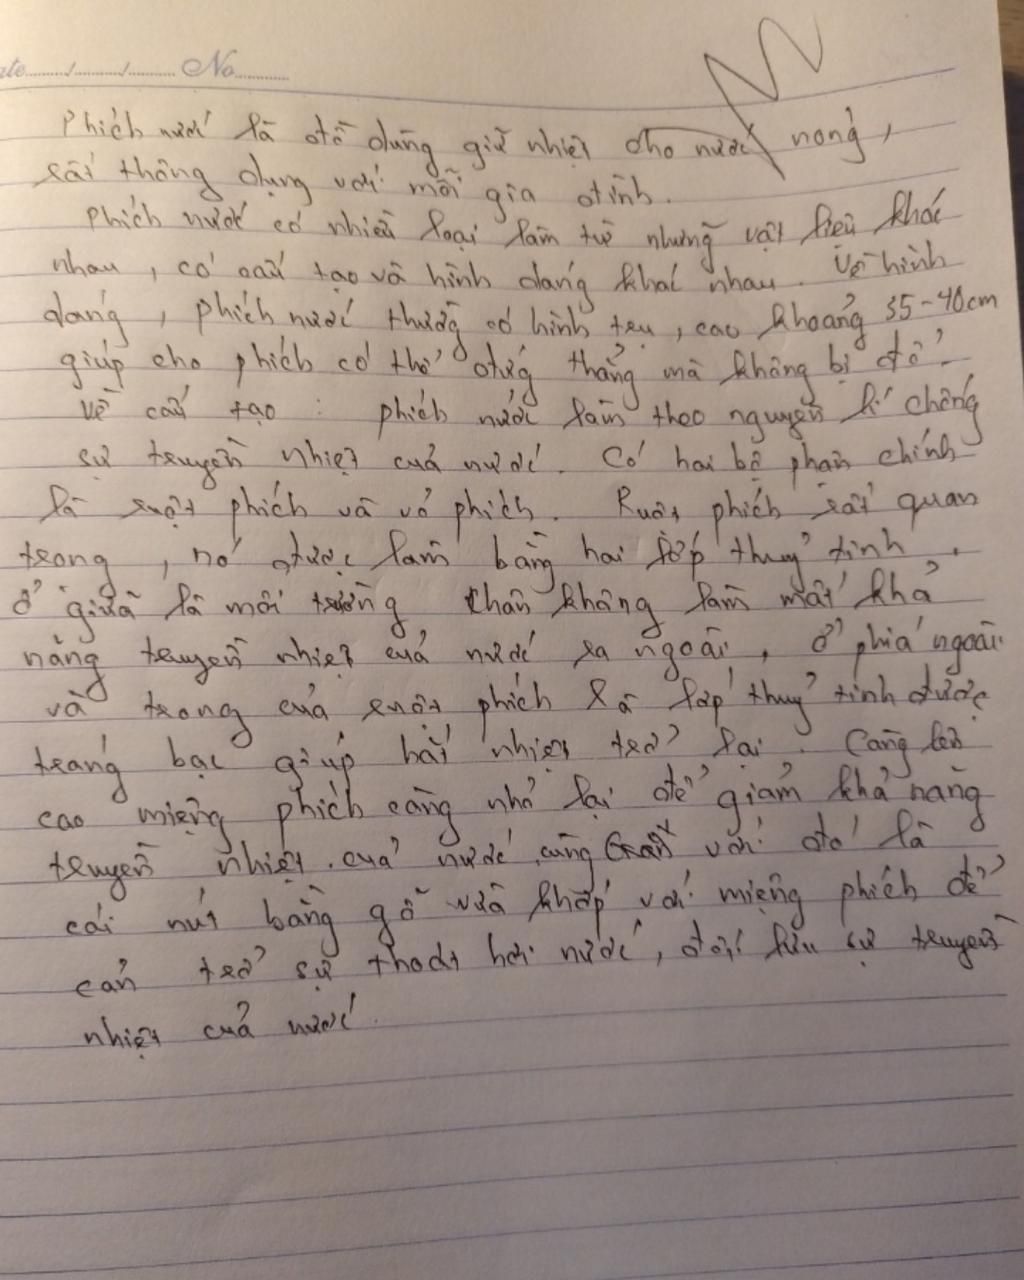 Date......./......./....... No............
Phích nước là đồ dùng giữ nhiệt cho nước nóng,
rất thông dụng với mỗi gia đình.
Phích nước có nhiều loại làm từ những vật liệu khác
nhau, có cấu tạo và hình dáng khác nhau. Về hình
dáng, phích nước thường có hình trụ, cao khoảng 35-40cm
giúp cho phích có thể đứng thẳng mà không bị đổ.
Về cấu tạo: phích nước làm theo nguyên lí chống
sự truyền nhiệt của nước. Có hai bộ phận chính
là ruột phích và vỏ phích. Ruột phích rất quan
trọng, nó được làm bằng hai lớp thuỷ tinh,
ở giữa là môi trường chân không làm mất khả
năng truyền nhiệt của nước ra ngoài, ở phía ngoài
và trong của ruột phích là lớp thuỷ tinh được
tráng bạc giúp hắt nhiệt trở lại. Càng lên
cao miệng phích càng nhỏ lại để giảm khả năng
truyền nhiệt của nước, cùng với đó là
cái nút bằng gỗ vừa khớp với miệng phích để
cản trở sự thoát hơi nước, đối lưu sự truyền
nhiệt của nước.